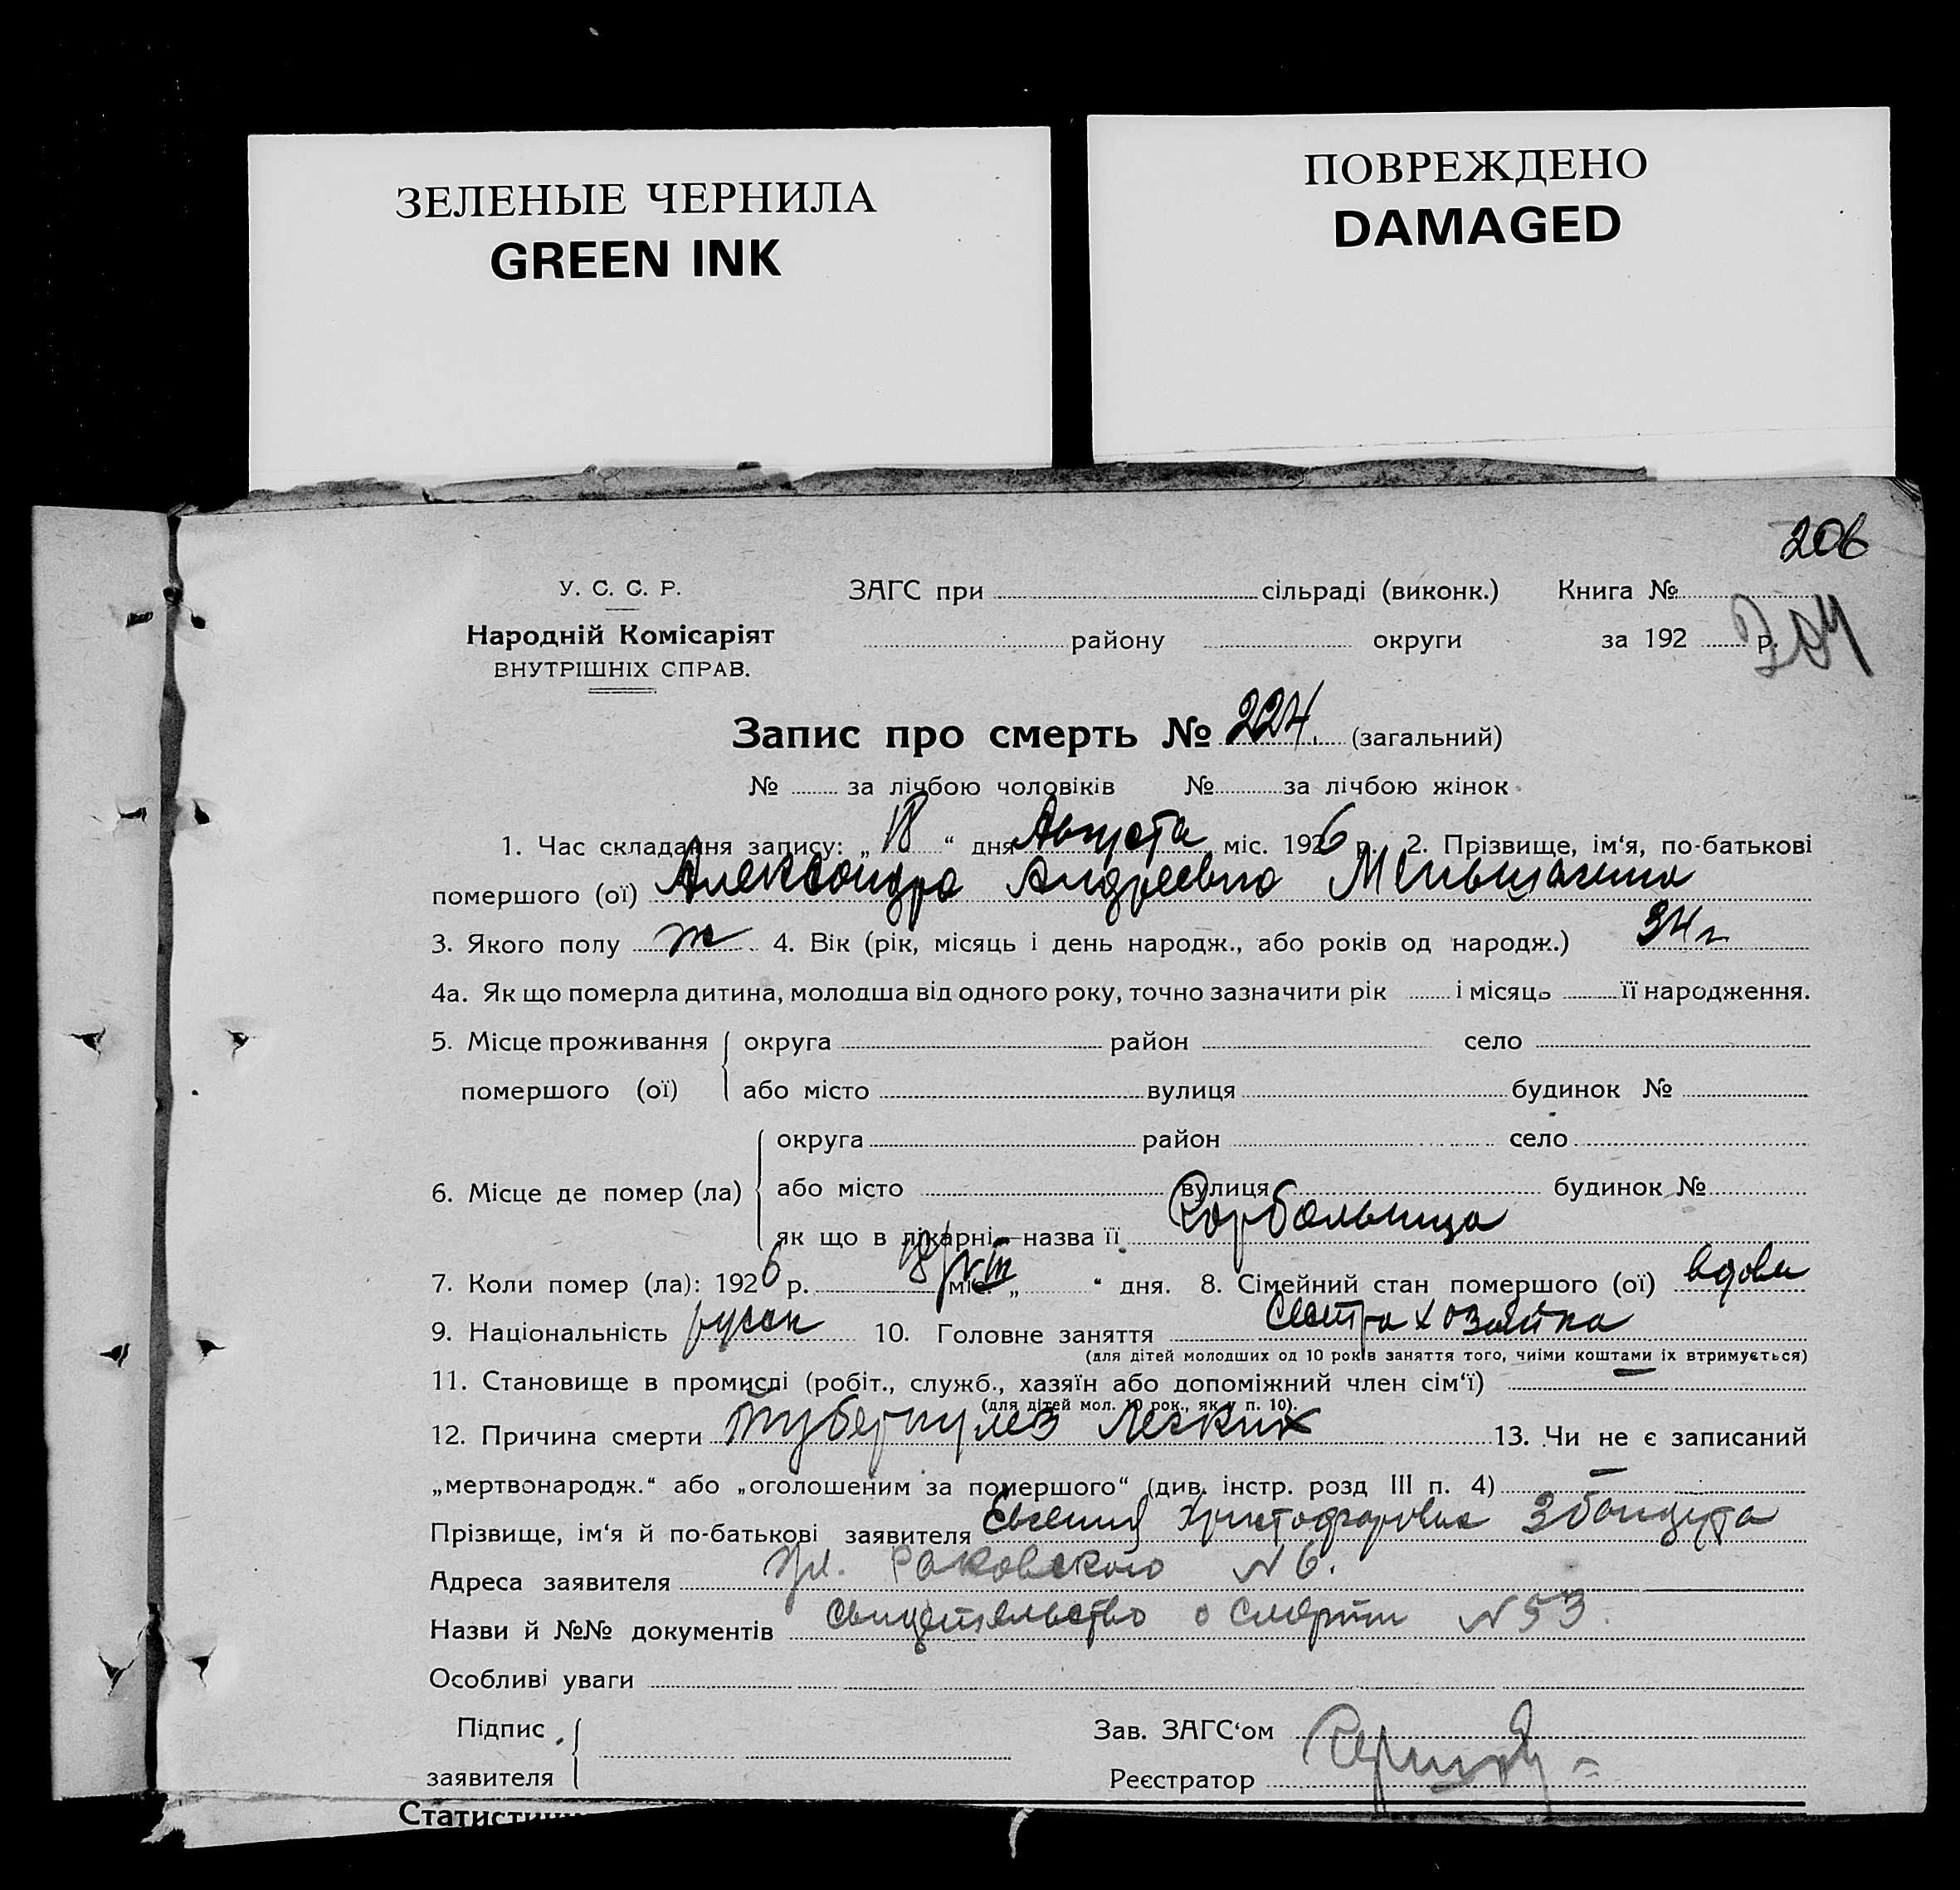 ЗЕЛЕНЫЕ ЧЕРНИЛА
GREEN INK
ПОВРЕЖДЕНО
DAMAGED
206
У. С. С. Р. ЗАГС при сільраді (виконк.) Книга №
Народній Комісаріят району округи за 192 р. 204
ВНУТРІШНІХ СПРАВ.
Запис про смерть № 224. (загальний)
№ за лічбою чоловіків № за лічбою жінок
1. Час складання запису: „18“ дня Августа міс. 1926 р. 2. Прізвище, ім‘я, по-батькові
помершого (ої) Александра Андреевна Меньшагина
3. Якого полу ж 4. Вік (рік, місяць і день народж., або років од народж.) 34 г
4а. Як що померла дитина, молодша від одного року, точно зазначити рік і місяць її народження.
5. Місце проживання округа район село
помершого (ої) або місто вулиця будинок №
округа район село
6. Місце де помер (ла) або місто вулиця будинок №
як що в лікарні—назва її Горбольница
7. Коли помер (ла): 1926 р. 18/VIII міс. „ “ дня. 8. Сімейний стан помершого (ої) вдова
9. Національність русск 10. Головне заняття Сестра хозяйка
(для дітей молодших од 10 років заняття того, чиїми коштами їх втримується)
11. Становище в промислі (робіт., служб., хазяїн або допоміжний член сім‘ї) —
(для дітей мол. 10 рок., як у п. 10).
12. Причина смерти Туберкулез легких 13. Чи не є записаний
„мертвонародж.“ або „оголошеним за помершого“ (див. інстр. розд III п. 4) —
Прізвище, ім‘я й по-батькові заявителя Евгения Христофоровна
Адреса заявителя Ул. Раковского N 6.
Назви й №№ документів свидетельство о смерти N 53.
Особливі уваги
Підпис Зав. ЗАГС‘ом
заявителя Реєстратор